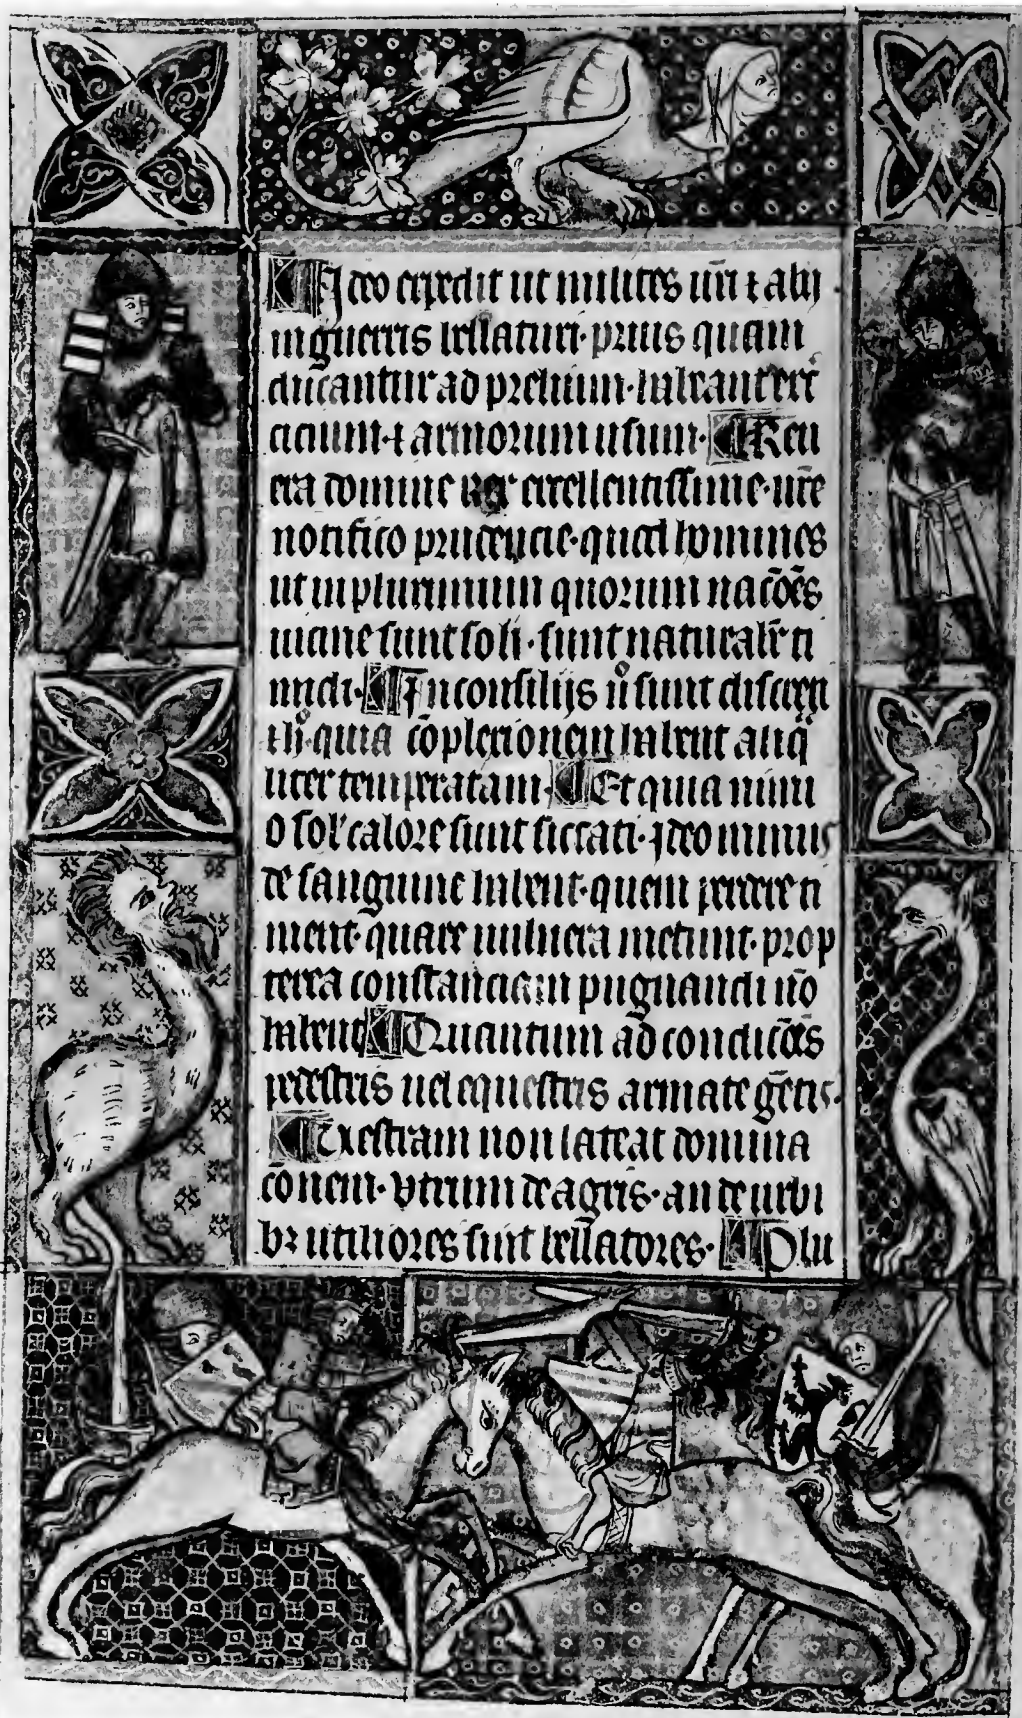 ¶ Ideo expedit ut milites vr̄i ⁊ alij
in guerris bellaturi· prius quam
ducantur ad prelium· habeant exer
cicium· ⁊ armorum usum· ¶ Reu
era domine Rex excellentissime· vr̄e
notifico prudencie· quod homines
ut in plurimum quorum nacōēs
uicine sunt soli· sunt naturalr̄ ti
midi· ¶ In consilijs ů sunt discreti
quia cōplexionem habent aliq̄
liter temperatam· ¶ Et quia nimi
o sol' calore sunt siccati· Ideo minus
de sanguine habent· quem perdere ti
ment· quare uulnera metunt· prop
terea constanciam pugnandi nō
habent ¶ Quantum ad condicōēs
pedestris uel equestris armate gētis·
¶ Uestram non lateat domina
cōnem· Vtrum de agris· an de urbi
bꝫ utiliores sint bellatores· ¶ Olu